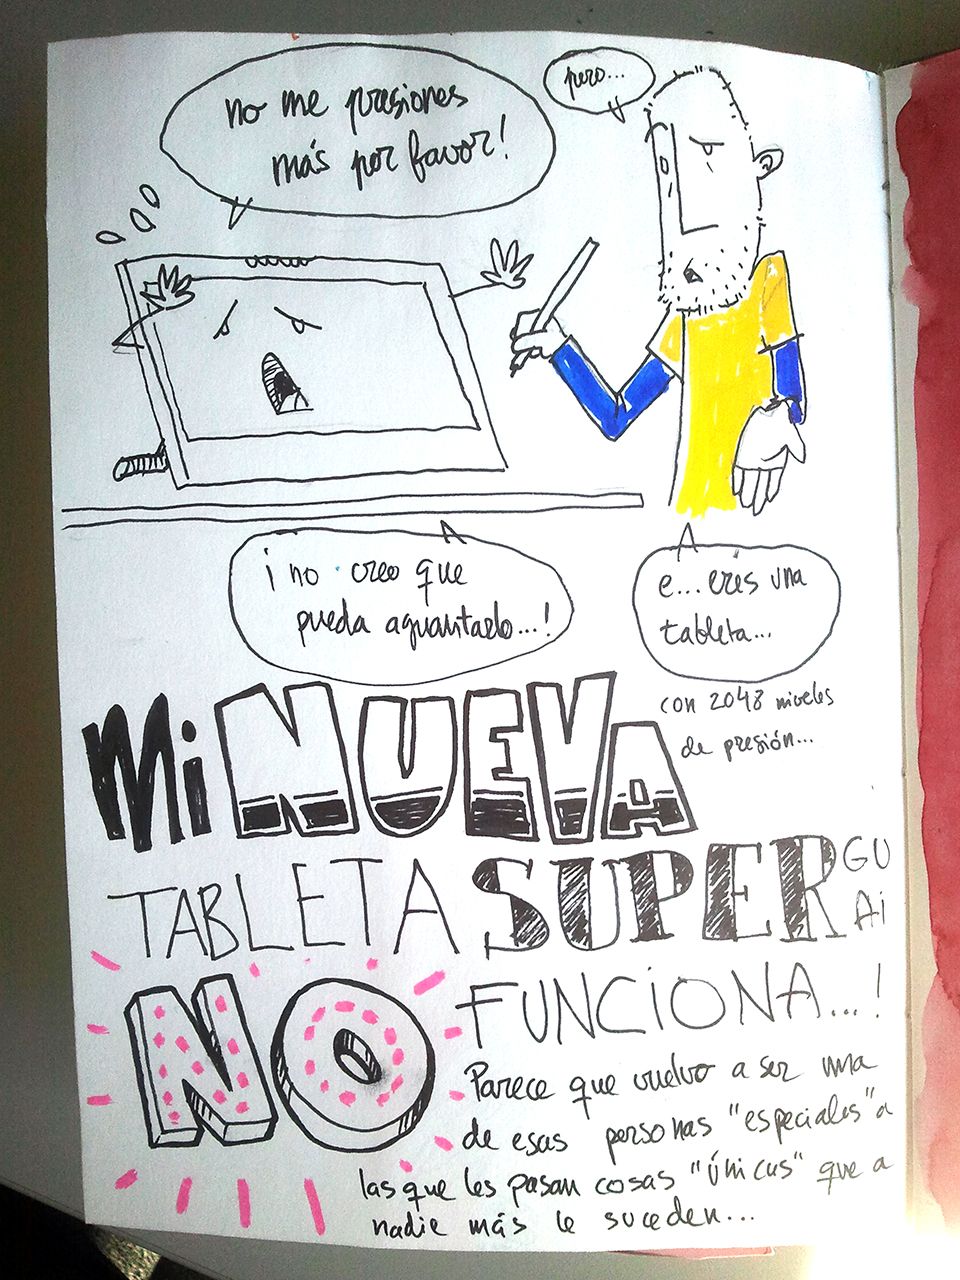 no me presiones
más por favor!
pero...
¡no creo que
pueda aguantarlo...!
e... eres una
tableta...
con 2048 niveles
de presión...
Mi NUEVA
TABLETA SUPER GU
Ai
NO FUNCIONA...!
Parece que vuelvo a ser una
de esas personas "especiales" a
las que les pasan cosas "únicas" que a
nadie más le suceden...